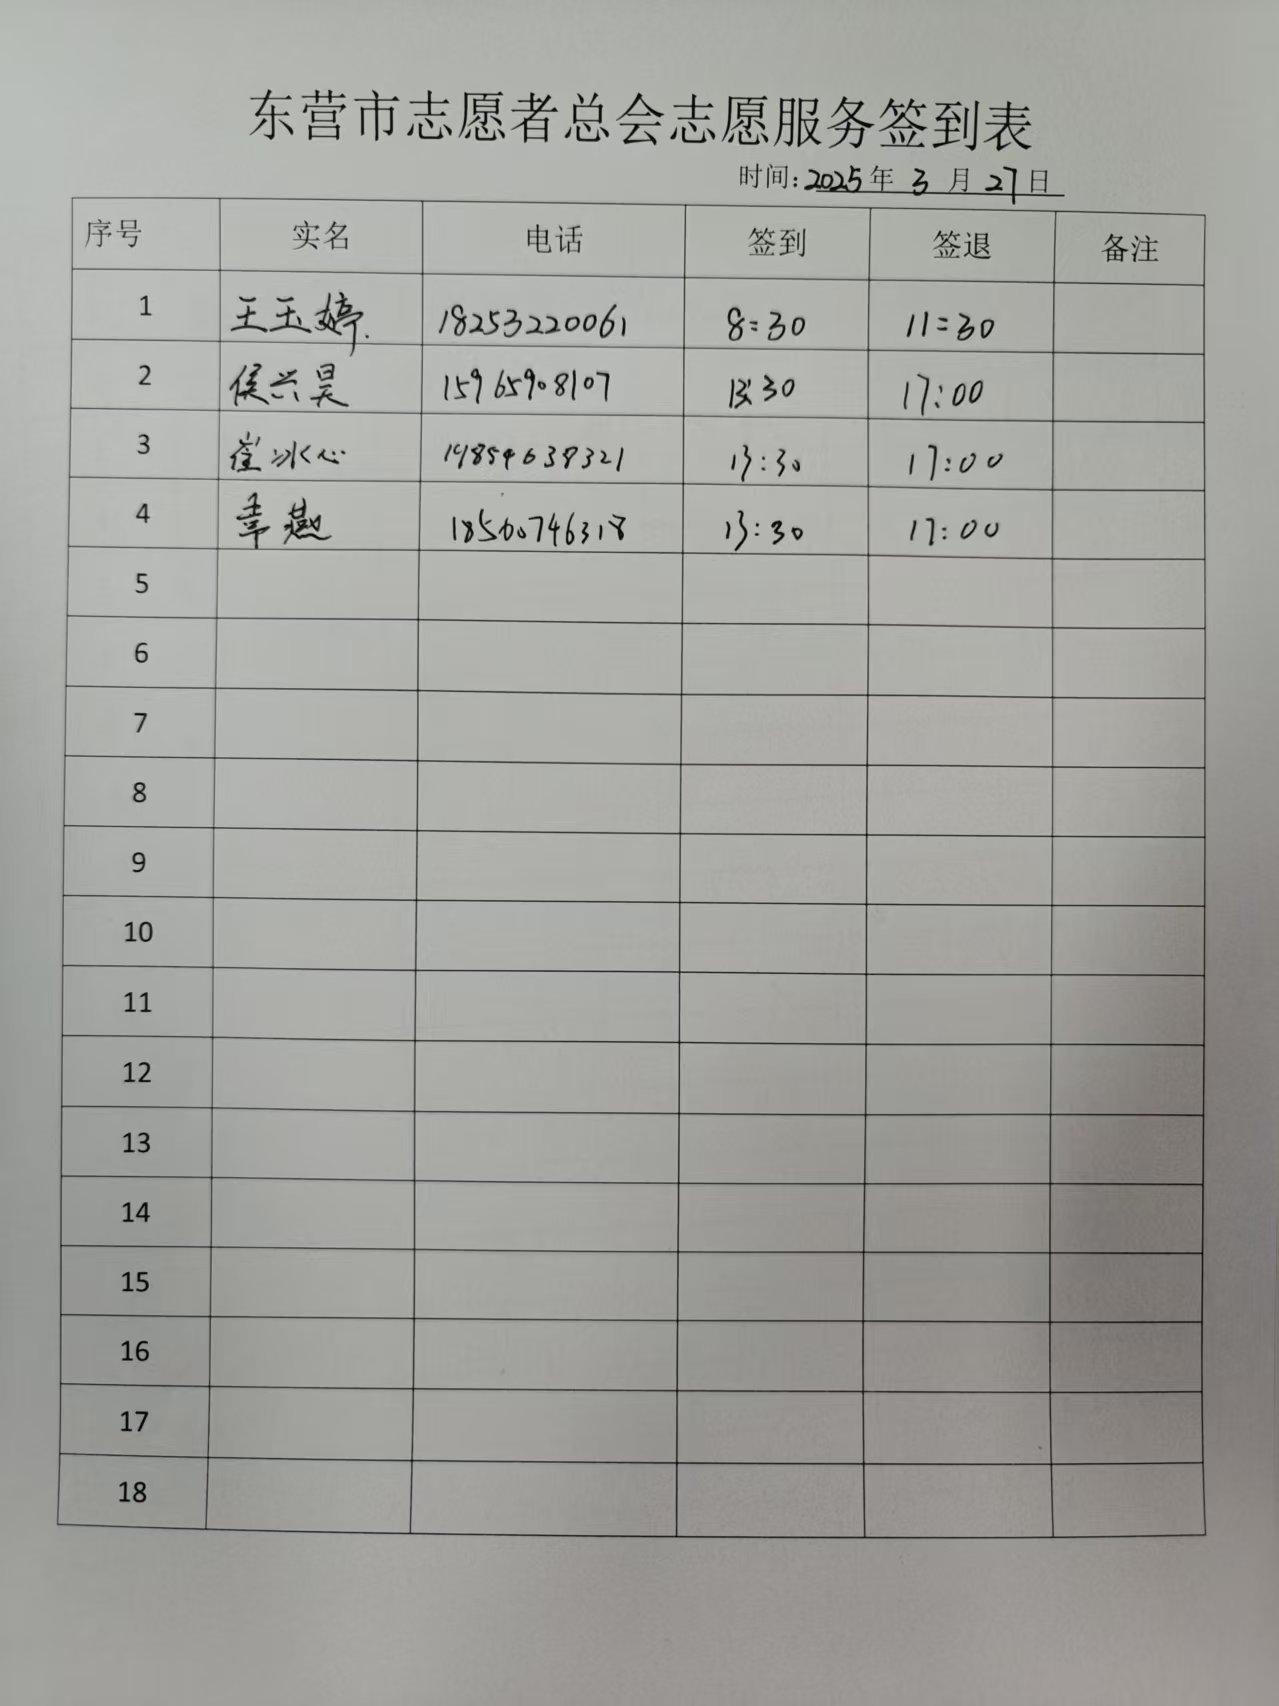 东营市志愿者总会志愿服务签到表
时间：2025年 3 月 27日
序号 实名 电话 签到 签退 备注
1 王玉婷 18253220061 8:30 11:30
2 侯兴昊 15965908107 13:30 17:00
3 崔冰心 19854638321 13:30 17:00
4 燕 18560746318 13:30 17:00
5
6
7
8
9
10
11
12
13
14
15
16
17
18